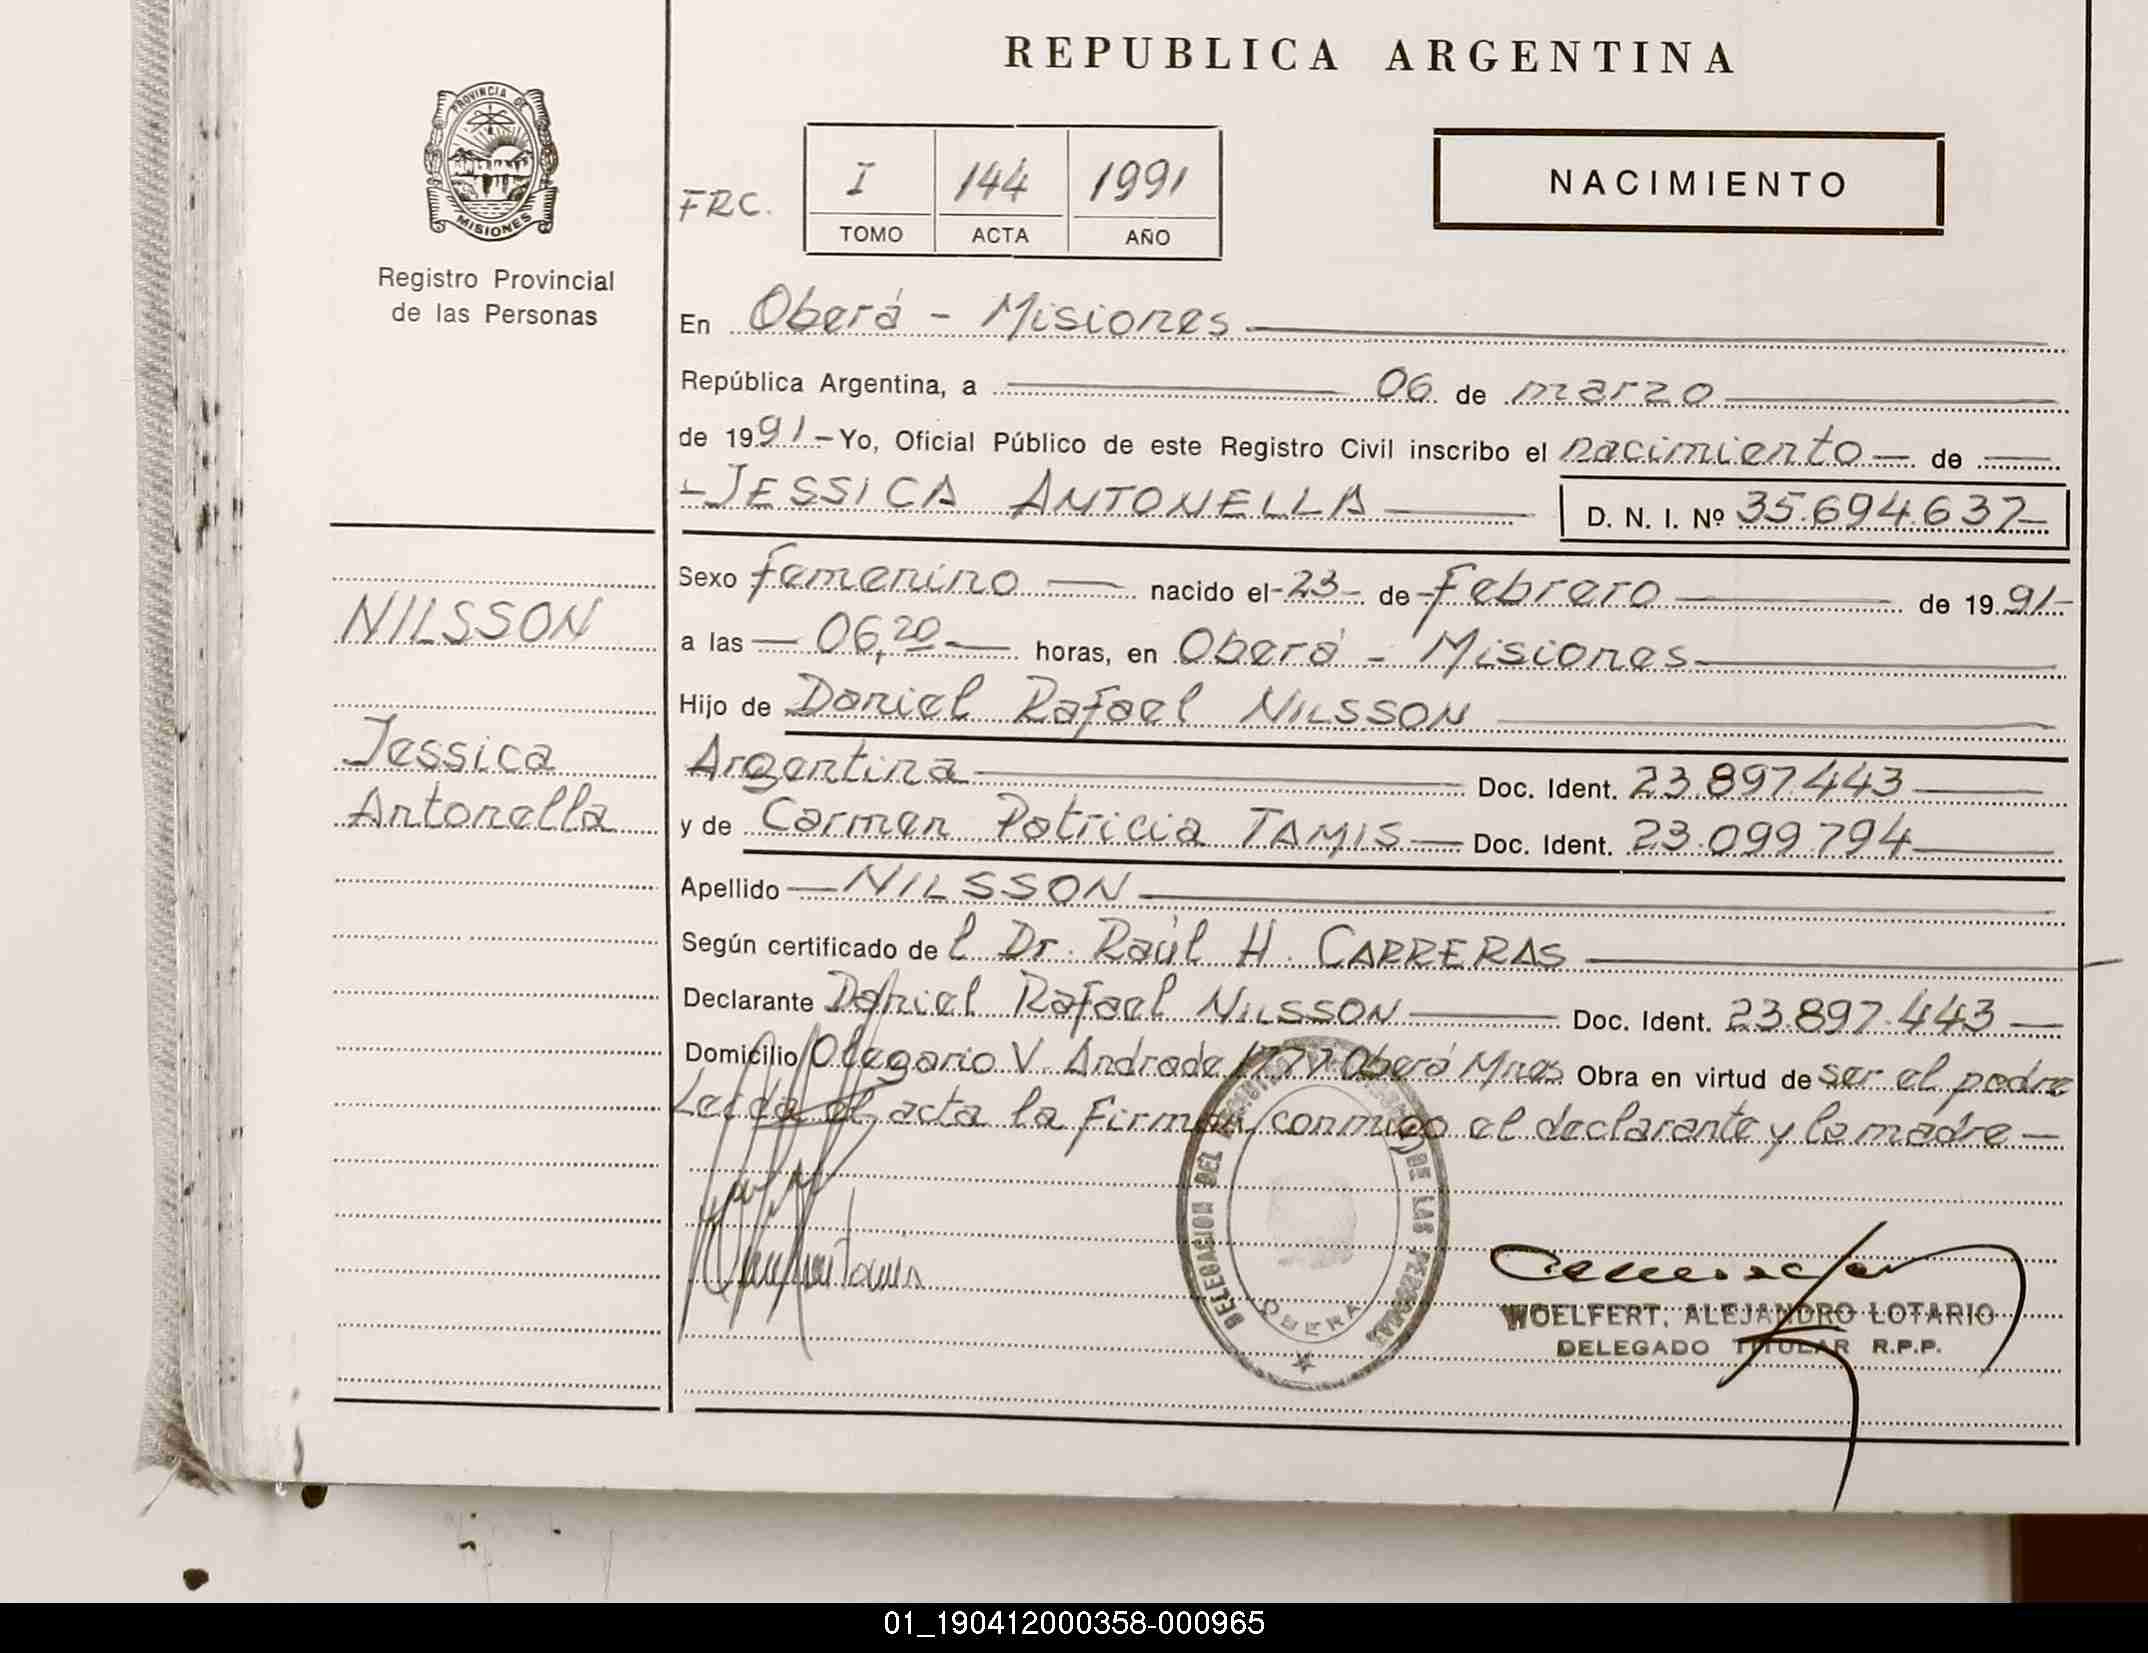 REPUBLICA ARGENTINA
PROVINCIA DE
MISIONES
Registro Provincial
de las Personas
FRC.
I 144 1991
TOMO ACTA AÑO
NACIMIENTO
En Oberá - Misiones
República Argentina, a 06 de marzo
de 1991- Yo, Oficial Público de este Registro Civil inscribo el nacimiento de
-JESSICA ANTONELLA D. N. I. Nº 35.694.637-
NILSSON
Jessica
Antonella
Sexo femenino nacido el -23- de -Febrero de 1991-
a las 06,20 horas, en Oberá - Misiones
Hijo de Daniel Rafael NILSSON
Argentina Doc. Ident. 23.897.443
y de Carmen Patricia TAMIS Doc. Ident. 23.099.794
Apellido NILSSON
Según certificado de l Dr. Raúl H. CARRERAS
Declarante Daniel Rafael NILSSON Doc. Ident. 23.897.443
Domicilio Olegario V. Andrade Oberá Mnes Obra en virtud de ser el padre
Leída el acta la firman conmigo el declarante y la madre
DELEGACION DEL REGISTRO DE LAS PERSONAS
OBERA
WOELFERT, ALEJANDRO LOTARIO
DELEGADO TITULAR R.P.P.
01_190412000358-000965